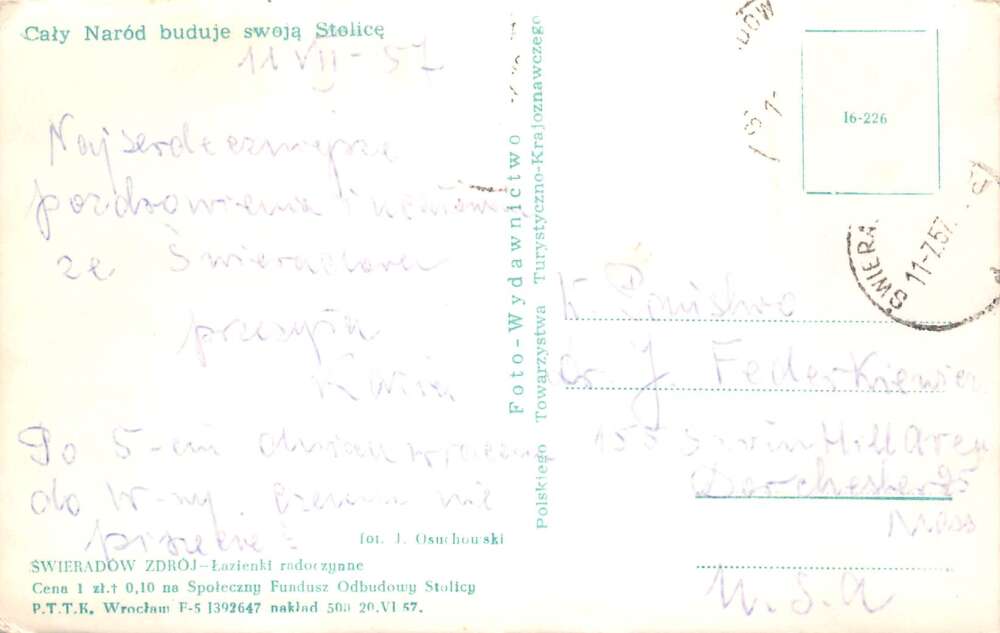 Cały Naród buduje swoją Stolicę
11 VII - 57
Najserdeczniejsze
pozdrowienia i
ze Świeradowa
przesyła
Po 5-ciu dniach wracamy
do W-wy. Czemu nie
piszecie!
fot. J. Osuchowski
ŚWIERADÓW ZDRÓJ—Łazienki radoczynne
Cena 1 zł.† 0,10 na Społeczny Fundusz Odbudowy Stolicy
P.T.T.K. Wrocław F-5 1392647 nakład 500 20.VI 57.
Foto-Wydawnictwo
Polskiego Towarzystwa Turystyczno-Krajoznawczego
16-226
DÓW
ŚWIERA
11-7.57
Dr. J. Federkiewicz
Savin Hill Aven
Dorchester 25
Mass
U.S.A